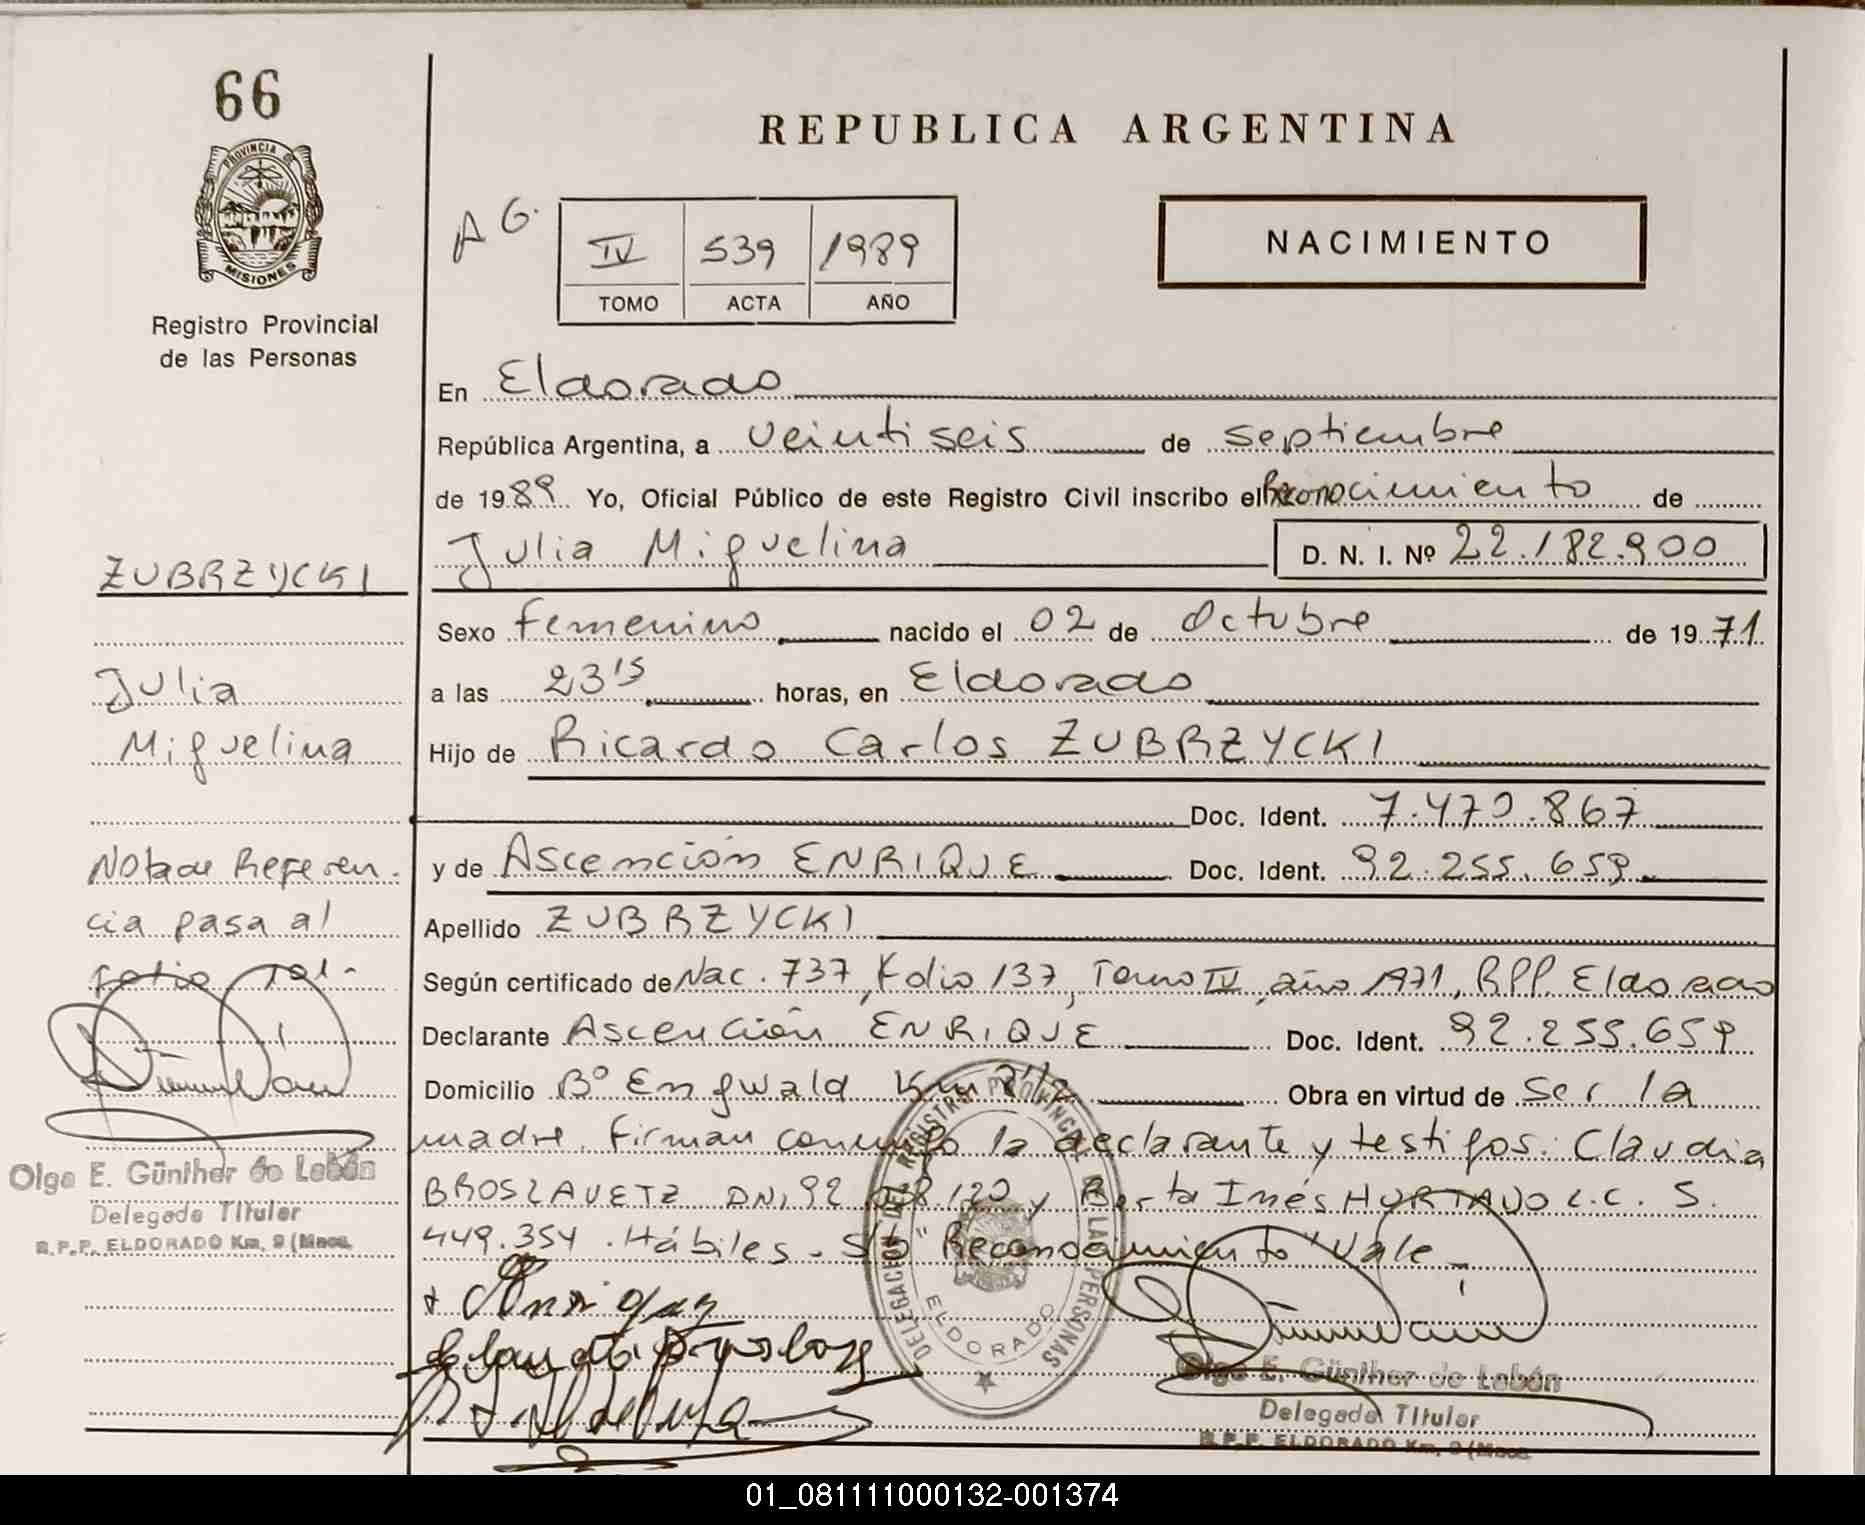 66
PROVINCIA DE
MISIONES
Registro Provincial
de las Personas
REPUBLICA ARGENTINA
A G.
IV 539 1989
TOMO ACTA AÑO
NACIMIENTO
En Eldorado
República Argentina, a veintiseis de septiembre
de 1989 Yo, Oficial Público de este Registro Civil inscribo el Reconocimiento de
Julia Miguelina D. N. I. Nº 22.182.900
Sexo femenino nacido el 02 de Octubre de 1971.
a las 23 15 horas, en Eldorado
Hijo de Ricardo Carlos ZUBRZYCKI
Doc. Ident. 7.470.867
y de Ascención ENRIQUE Doc. Ident. 92.255.659
Apellido ZUBRZYCKI
Según certificado de Nac. 737, Folio 137, Tomo IV, año 1971, RPP. Eldorado
Declarante Ascención ENRIQUE Doc. Ident. 92.255.659
Domicilio Bº Engwald Km Obra en virtud de ser la
madre. Firman conmigo la declarante y testigos: Claudia
BROSZAVETZ DNI 92 120 y Berta Inés HURTADO L.C. 5.
449.354. Hábiles - S/b "Reconocimiento" Vale -
ZUBRZYCKI
Julia
Miguelina
Nota de Referen-
cia pasa al
folio 101-
Olga E. Günther de Lebán
Delegada Titular
R.P.P. ELDORADO Km. 9 (Mnes.
DELEGACION DEL REGISTRO PROVINCIAL DE LAS PERSONAS
ELDORADO
Olga E. Günther de Lebán
Delegada Titular
R.P.P. ELDORADO Km. 9 (Mnes.
01_081111000132-001374